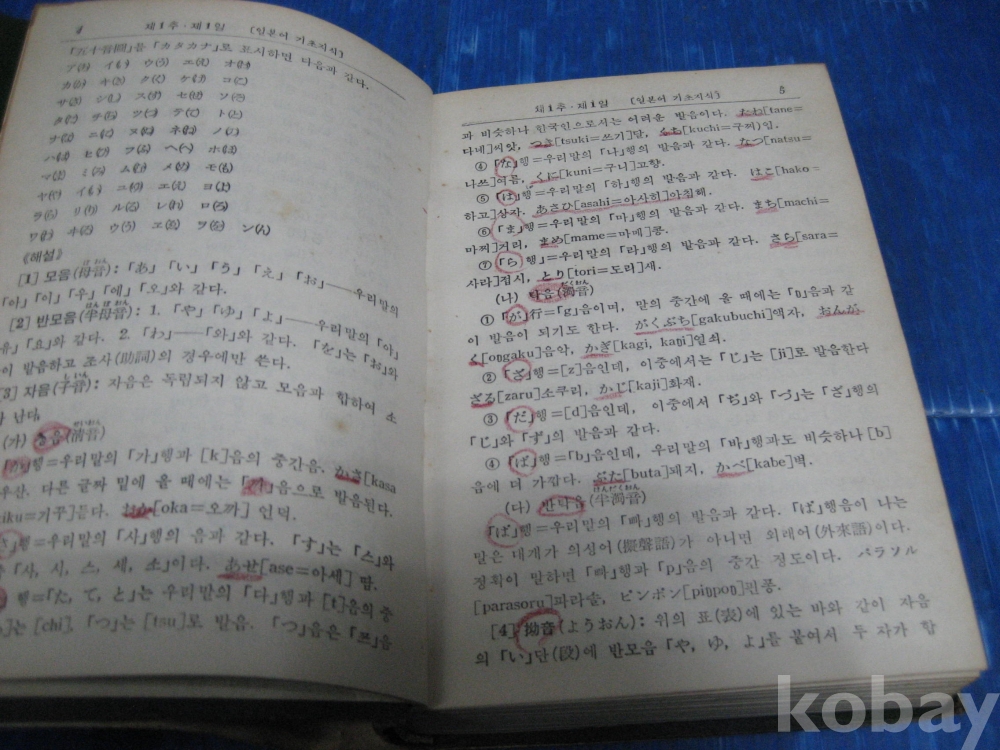 4 제1주·제1일 (일본어 기초지식)
「五十音圖」를 「カタカナ」로 표시하면 다음과 같다.
ア(아) イ(이) ウ(우) エ(에) オ(오)
カ(카) キ(키) ク(쿠) ケ(케) コ(코)
サ(사) シ(시) ス(스) セ(세) ソ(소)
タ チ ツ テ ト
ナ ニ ヌ ネ ノ
ハ ヒ フ ヘ ホ
マ ミ ム メ モ
ヤ イ ユ エ ヨ
ラ リ ル レ ロ
ワ ヰ ウ ヱ ヲ ン(ん)
《해설》
[1] 모음(母音): 「あ」「い」「う」「え」「お」──우리말의
「아」「이」「우」「에」「오」와 같다.
[2] 반모음(半母音): 1. 「や」「ゆ」「よ」──우리말의 「야」
「유」「요」와 같다. 2. 「わ」──「와」와 같다. 「を」는 「お」와
이 발음하고 조사(助詞)의 경우에만 쓴다.
[3] 자음(子音): 자음은 독립되지 않고 모음과 합하여 소
난다.
(가) 청음(清音)
「か」행=우리말의 「가」행과 [k]음의 중간음. かさ[kasa
우산. 다른 글짜 밑에 올 때에는 「까」음으로 발음된다.
kiku=기꾸]듣다. おか[oka=오까] 언덕.
행=우리말의 「사」행의 음과 같다. 「す」는 「스」와
「사, 시, 스, 세, 소」이다. あせ[ase=아세] 땀.
행=「た, て, と」는 우리말의 「다」행과 [t]음의 중
는 [chi], 「つ」는 [tsu]로 발음. 「つ」음은 「쯔」음
제1주·제1일 (일본어 기초지식) 5
과 비슷하나 한국인으로서는 어려운 발음이다. たね[tane=
다네]씨앗, つき[tsuki=쓰기]달, くち[kuchi=구찌]입.
④ 「な」행=우리말의 「나」행의 발음과 같다. なつ[natsu=
나쓰]여름, くに[kuni=구니]고향.
⑤ 「は」행=우리말의 「하」행의 발음과 같다. はこ[hako=
하고]상자. あさひ[asahi=아사히]아침해.
⑥ 「ま」행=우리말의 「마」행의 발음과 같다. まち[machi=
마찌]거리, まめ[mame=마메]콩.
⑦ 「ら」행=우리말의 「라」행의 발음과 같다. さら[sara=
사라]접시, とり[tori=도리]새.
(나) 탁음(濁音)
① 「が」行=「g」음이며, 말의 중간에 올 때에는 「ŋ」음과 같
이 발음이 되기도 한다. がくぶち[gakubuchi]액자, おんが
く[oŋgaku]음악, かぎ[kagi, kaŋi]열쇠.
② 「ざ」행=[z]음인데, 이중에서는 「じ」는 [ji]로 발음한다
ざる[zaru]소쿠리, かじ[kaji]화재.
③ 「だ」행=[d]음인데, 이중에서 「ぢ」와 「づ」는 「ざ」행의
「じ」와 「ず」의 발음과 같다.
④ 「ば」행=「b」음인데, 우리말의 「바」행과도 비슷하나 [b]
음에 더 가깝다. ぶた[buta]돼지, かべ[kabe]벽.
(다) 반탁음(半濁音)
「ぱ」행=우리말의 「빠」행의 발음과 같다. 「ぱ」행음이 나는
말은 대개가 의성어(擬聲語)가 아니면 외래어(外來語)이다.
정확이 말하면 「빠」행과 「p」음의 중간 정도이다. パラソル
[parasoru]파라솔, ピンポン[piŋpoŋ]핀퐁.
[4] 拗音(ようおん): 위의 표(表)에 있는 바와 같이 자음
의 「い」단(段)에 반모음 「や, ゆ, よ」를 붙여서 두 자가 합
kobay